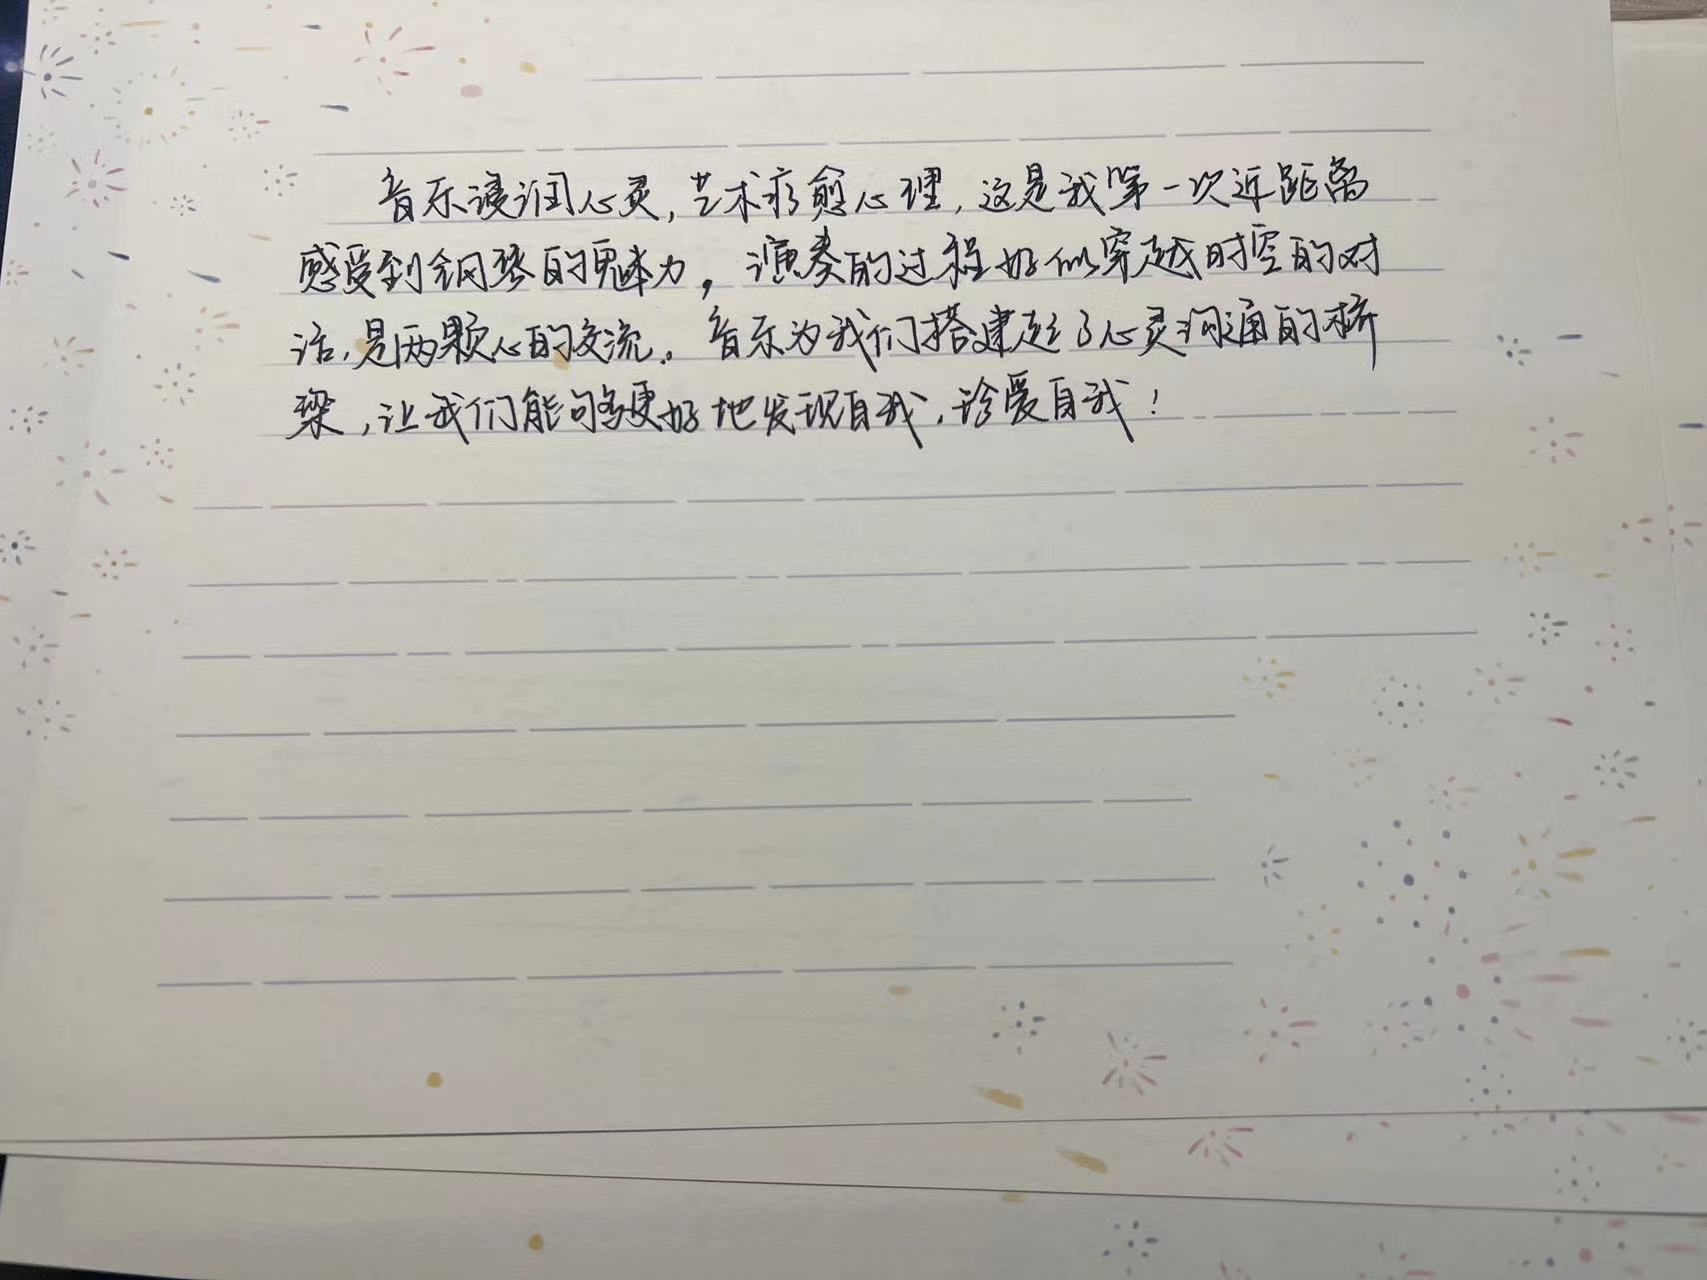 音乐浸润心灵，艺术疗愈心理，这是我第一次近距离
感受到钢琴的魅力，演奏的过程好似穿越时空的对
话，是两颗心的交流。音乐为我们搭建起了心灵沟通的桥
梁，让我们能够更好地发现自我，珍爱自我！